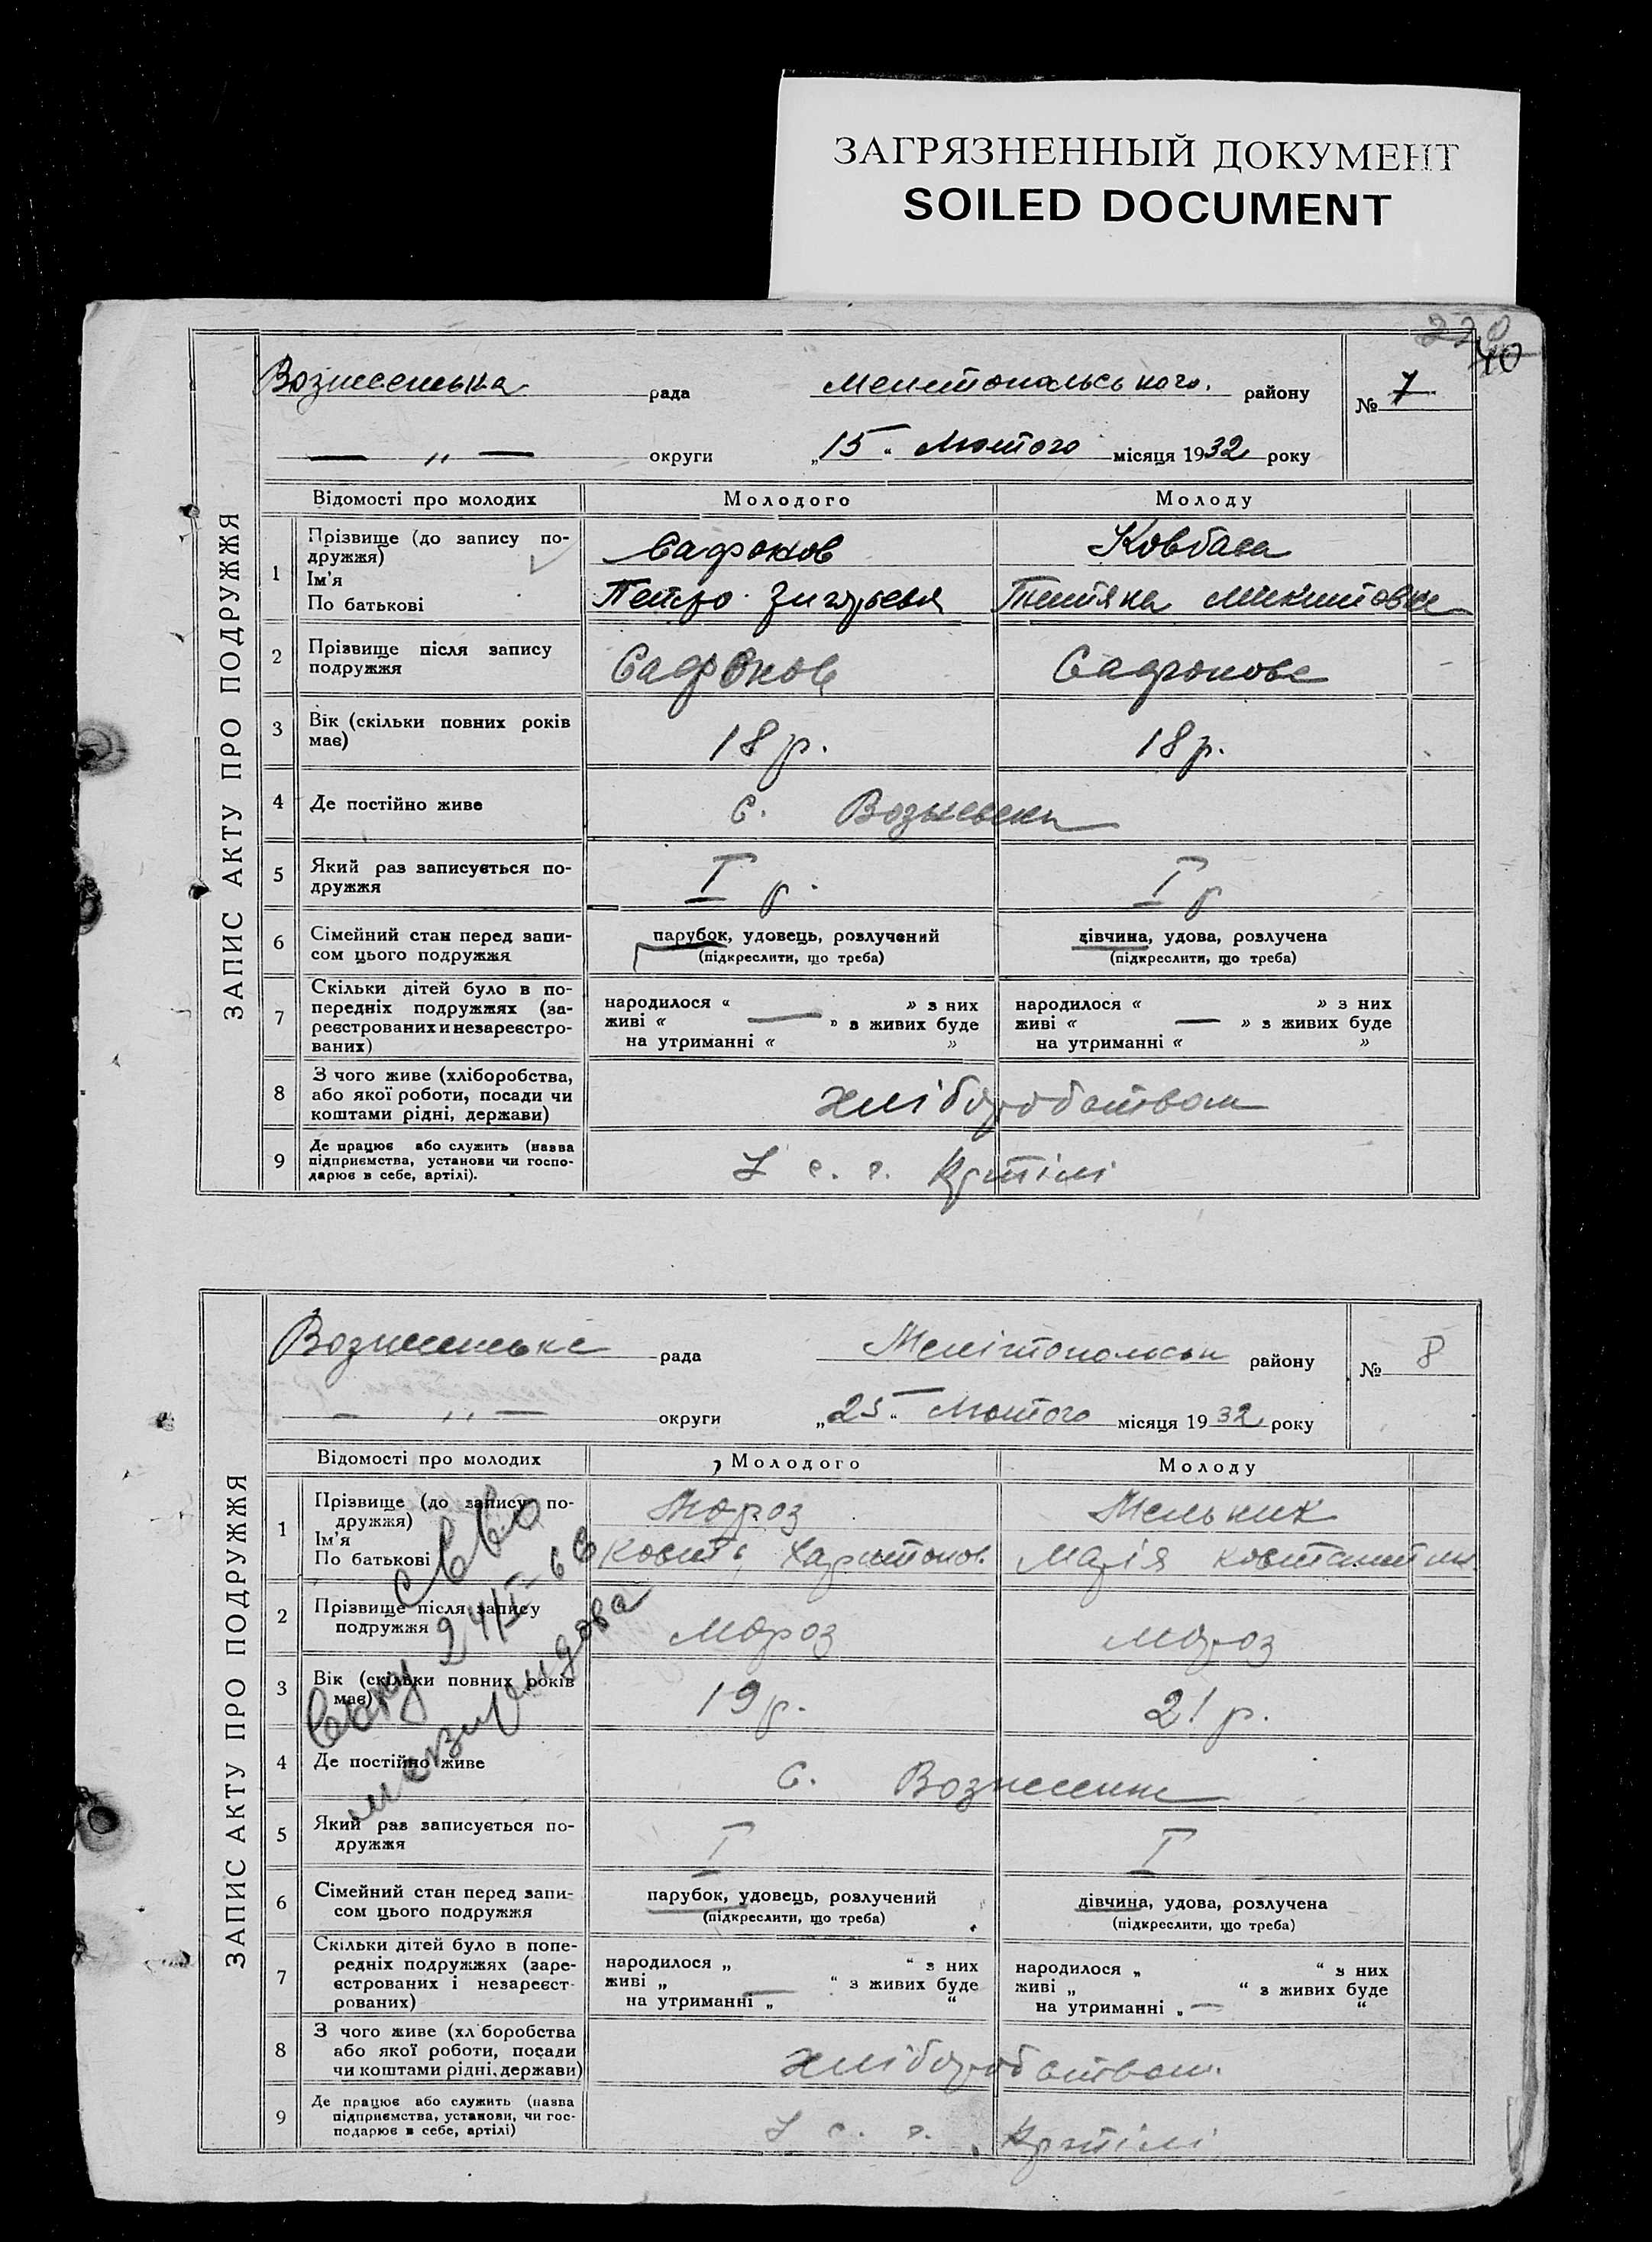 ЗАГРЯЗНЕННЫЙ ДОКУМЕНТ
SOILED DOCUMENT
40
ЗАПИС АКТУ ПРО ПОДРУЖЖЯ
Вознесенська рада Мелитопольського. району № 7
— „ — округи „15“ Лютого місяця 1932 року
Відомості про молодих Молодого Молоду
1 Прізвище (до запису по-
дружжя)
Ім'я
По батькові
Сафонов Ковбаса
Петро Тетяна Микитовна
2 Прізвище після запису
подружжя
Сафонов Сафонова
3 Вік (скільки повних років
має)
18 р. 18 р.
4 Де постійно живе
с. Вознесенка
5 Який раз записується по-
дружжя
I р. I р
6 Сімейний стан перед запи-
сом цього подружжя
парубок, удовець, розлучений дівчина, удова, розлучена
(підкреслити, що треба) (підкреслити, що треба)
7 Скільки дітей було в по-
передніх подружжях (за-
реєстрованих и незареєстро-
ваних)
народилося « » з них народилося « » з них
живі « — » з живих буде живі « — » з живих буде
на утриманні « » на утриманні « »
8 З чого живе (хліборобства,
або якої роботи, посади чи
коштами рідні, держави)
хліборобством
9 Де працює або служить (назва
підприємства, установи чи госпо-
дарює в себе, артілі).
У с. г. Артілі
ЗАПИС АКТУ ПРО ПОДРУЖЖЯ
Вознесенська рада Мелітопольськ району № 8
— „ — округи „25“ Лютого місяця 1932 року
Відомості про молодих Молодого Молоду
1 Прізвище (до запису по-
дружжя)
Ім'я
По батькові
Мороз Мельник
Харитонов. Марія
2 Прізвище після запису
подружжя
Мороз Мороз
3 Вік (скільки повних років
має)
19 р. 21 р.
4 Де постійно живе
с. Вознесенк
5 Який раз записується по-
дружжя
I I
6 Сімейний стан перед запи-
сом цього подружжя
парубок, удовець, розлучений дівчина, удова, розлучена
(підкреслити, що треба) (підкреслити, що треба)
7 Скільки дітей було в попе-
редніх подружжях (заре-
єстрованих і незареєст-
рованих)
народилося „ “ з них народилося „ “ з них
живі „ — “ з живих буде живі „ “ з живих буде
на утриманні „ “ на утриманні „ — “
8 З чого живе (хл боробства
або якої роботи, посади
чи коштами рідні, держави)
хліборобством.
9 Де працює або служить (назва
підприємства, установи, чи гос-
подарює в себе, артілі)
У с. г. Артілі